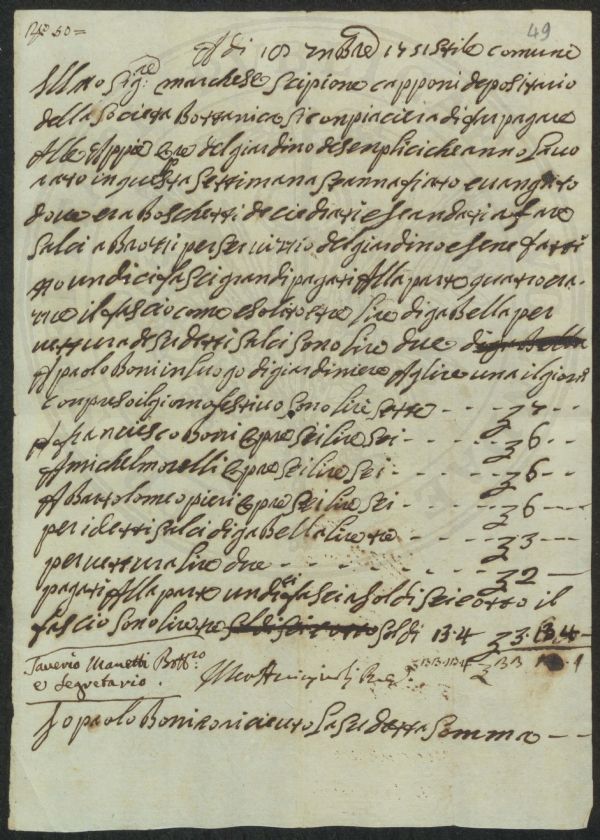 No 50=
49
A di 10 xmbre 1751 stile comune
Ill.mo Sig.re marchese Scipione capponi depositario
della Società Bottanica si conpiacierà di far pagare
Alle Appie opre del giardino de senplici che anno Lavo
rato in questa Settimana e
dove era Boschetti de e Sono andati a fare
Salci a Brozzi per servizzio del giardino e sene fatti
tto undici fasci grandi pagati Alla parte quatro cra
zie il fascio come e solito e tre lire di gabella e per
vettura de sudetti Salci Sono Lire due di gabella
A paolo Boni in Luogo di giardiniere A lire una il giorno
conpreso il giorno festivo Sono lire sette - - - - 7 - -
A franciesco Boni opre sei lire sei - - - - - 6 - -
A michel morelli opre sei lire sei - - - - - 6 - -
A Bartolomeo pieri opre sei lire sei - - - - 6 - -
per i detti salci di gabella lire tre - - - - 3 - -
per vettura lire due - - - - - - - - 2 -
pagati Alla parte undici fasci a soldi sei e otto il
fascio Sono lire tre soldi sei e otto soldi 13.4 3.13.4 -
Saverio Manetti
e Segretario.
Io paolo Boni o riceuto La sudetta Somma - -